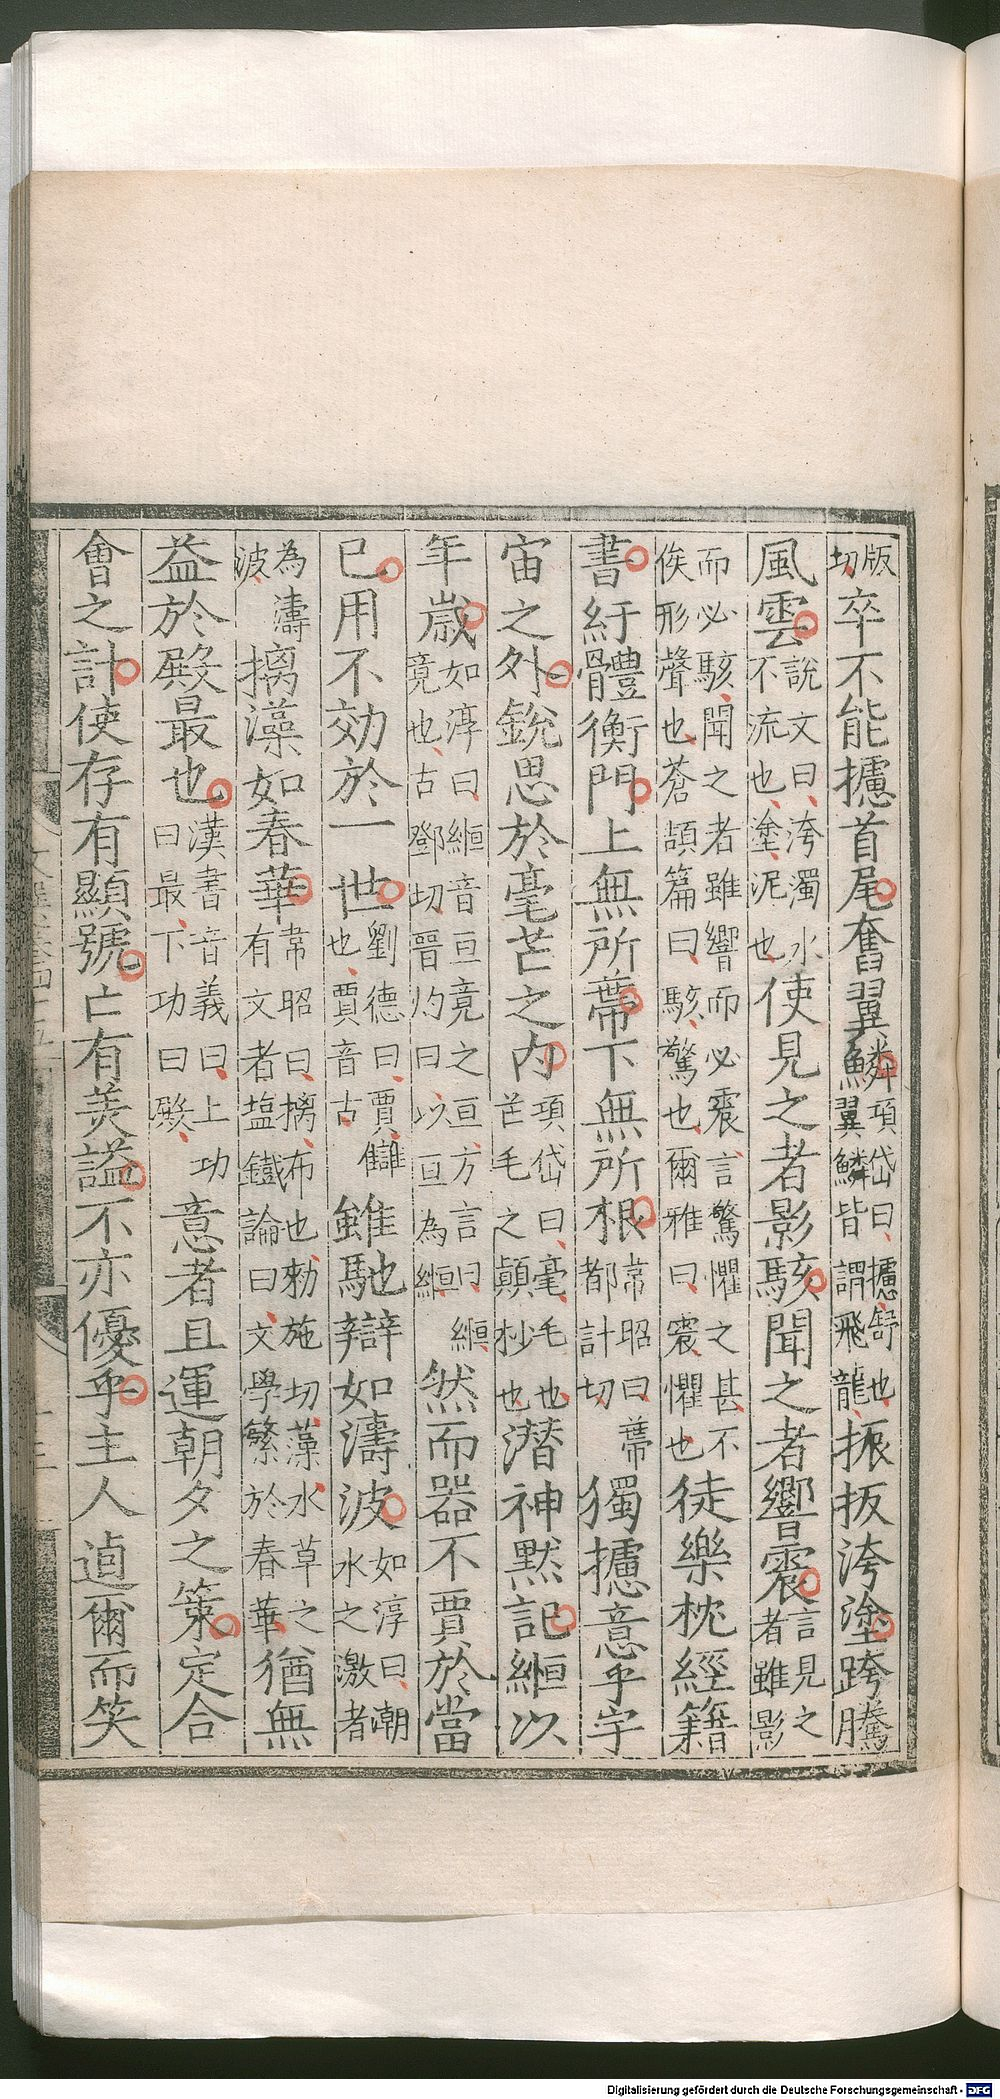 版切卒不能攄首尾奮翼鱗項岱曰攄舒也翼鱗皆謂飛龍振扳洿塗跨騰
風雲說文曰洿濁水不流也塗泥也使見之者影駭聞之者響震言見之者雖影
而必駭聞之者雖響而必震言驚懼之甚不俟形聲也蒼頡篇曰駭驚也爾雅曰震懼也徒樂枕經籍
書紆體衡門上無所蔕下無所根韋昭曰蔕都計切獨攄意乎宇
宙之外銳思於毫芒之內項岱曰毫毛也芒毛之顛杪也潛神默記緪以
年歲如淳曰緪音亘竟之亘方言曰緪竟也古鄧切晉灼曰以亘為緪然而器不賈於當
已用不効於一世劉德曰賈讎也賈音古雖馳辯如濤波如淳曰潮水之激者
為濤波摛藻如春華韋昭曰摛布也勑施切藻水草之有文者塩鐵論曰文學繁於春華猶無
益於殿最也漢書音義曰上功曰最下功曰殿意者且運朝夕之策定合
會之計使存有顯號亡有美謚不亦優乎主人逌爾而笑
Digitalisierung gefördert durch die Deutsche Forschungsgemeinschaft - DFG